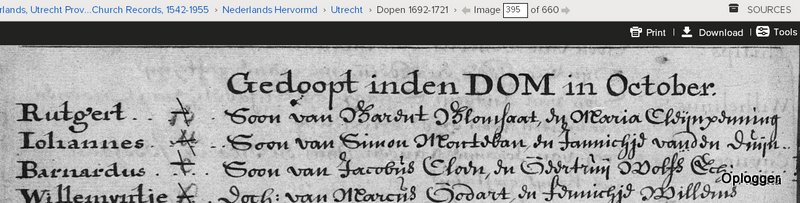 rlands, Utrecht Prov...Church Records, 1542-1955 › Nederlands Hervormd › Utrecht › Dopen 1692-1721 › Image 395 of 660 SOURCES
Print Download Tools
Gedoopt inden DOM in October.
Rutgert . . Soon van Barent Blomsaat, en Maria Cleijnpenning
Iohannes . . Soon van Simon Monteban, en Jannichje vanden Duijn..
Barnardus . . Soon van Jacobus Cloen, en Geertruij Wolfs
Willemyntje Doch: van Marcus Godart, en Jennichje Willems
Oplogger